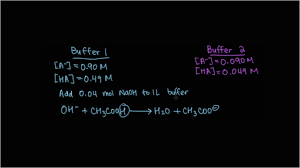 Buffer 1
[A⁻] = 0.90 M
[HA] = 0.49 M
Buffer 2
[A⁻] = 0.090 M
[HA] = 0.049 M
Add 0.04 mol NaOH to 1L buffer
OH⁻ + CH₃COOH → H₂O + CH₃COO⁻